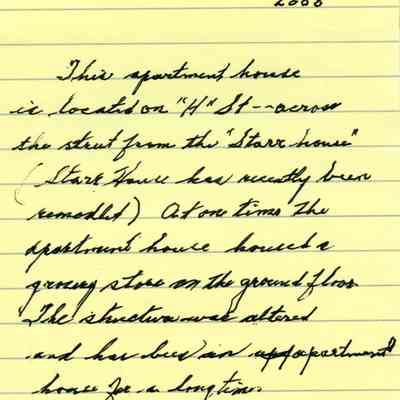 2000
This apartment house
is located on "H" St -- across
the street from the "Starr house"
(Starr House has recently been
remodled) At one time the
apartment house housed a
grocery store on the ground floor
The structure was altered
and has been an apartment
house for a long time.